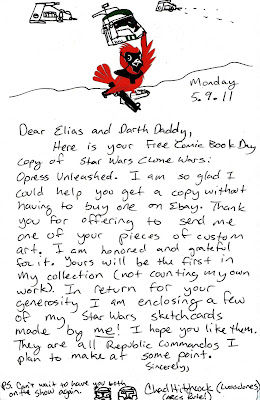 Monday
5.9.11
Dear Elias and Darth Daddy,
Here is your Free Comic Book Day
copy of Star Wars Clone Wars:
Opress Unleashed. I am so glad I
could help you get a copy without
having to buy one on Ebay. Thank
you for offering to send me
one of your pieces of custom
art. I am honored and grateful
for it. Yours will be the first in
my collection (not counting my own
work). In return for your
generosity I am enclosing a few
of my Star Wars sketchcards
made by me! I hope you like them.
They are all Republic Commandos I
plan to make at some point.
Sincerely,
P.S. Can't wait to have you both
on the show again.
Chad Hitchcock